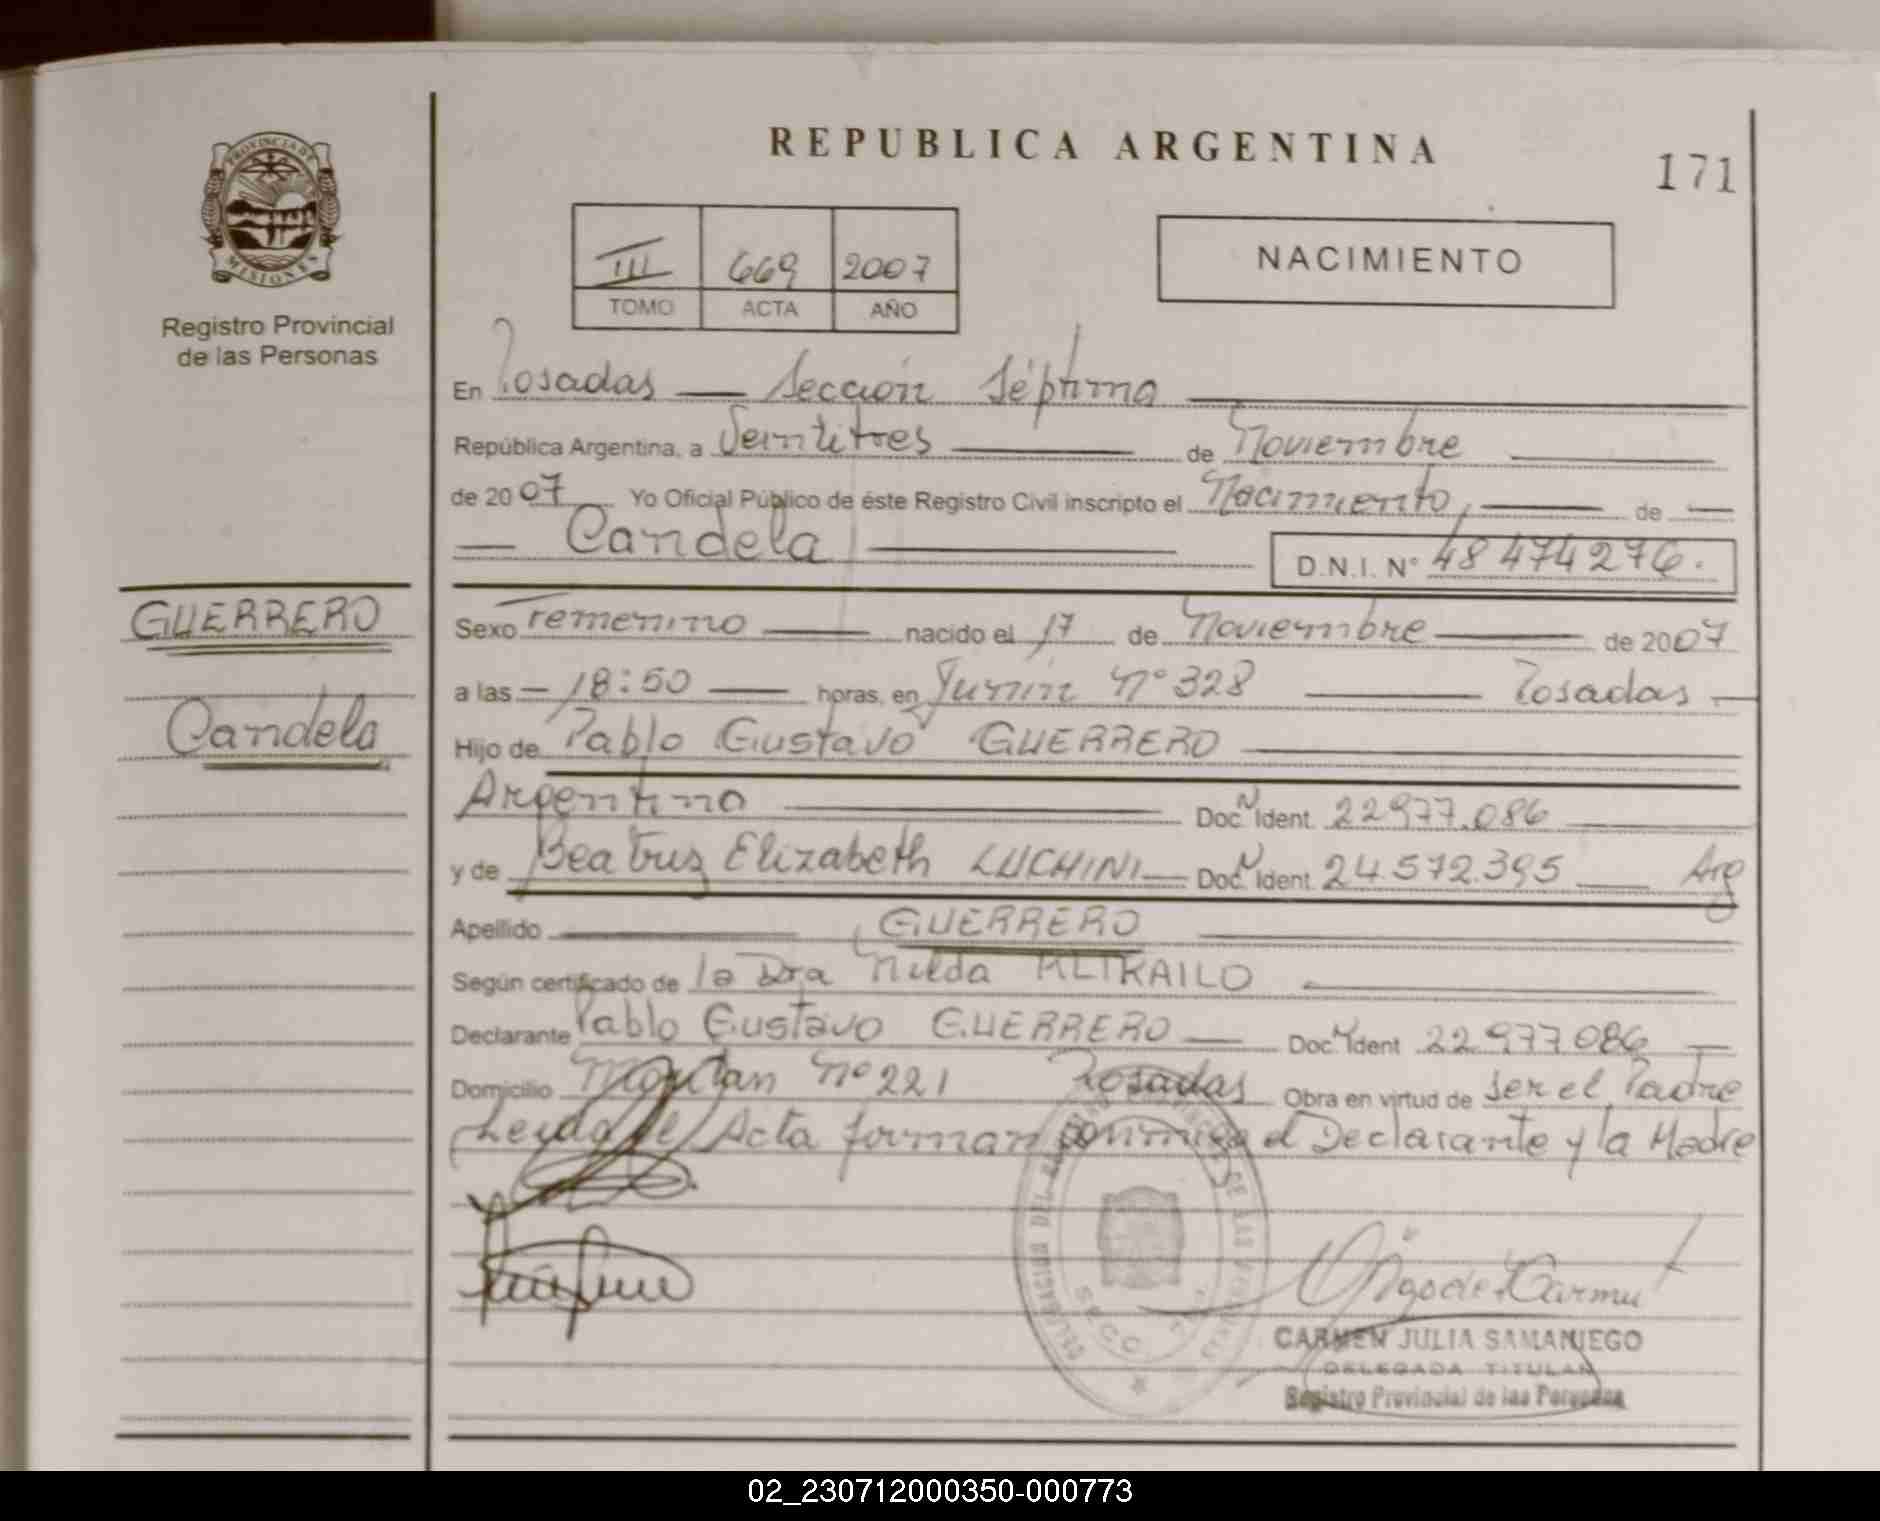 PROVINCIA DE MISIONES
Registro Provincial
de las Personas
REPUBLICA ARGENTINA
171
III 669 2007
TOMO ACTA AÑO
NACIMIENTO
En Posadas — Sección Séptima
República Argentina, a Veintitres de Noviembre
de 2007 Yo Oficial Público de éste Registro Civil inscripto el Nacimiento, de
Candela D.N.I. N° 48 474 276.
GUERRERO
Candela
Sexo Femenino nacido el 17 de Noviembre de 2007
a las 18:50 horas, en Junín N° 328 Posadas
Hijo de Pablo Gustavo GUERRERO
Argentino Doc. N Ident. 22977.086
y de Beatriz Elizabeth LUCHINI Doc. N Ident. 24.572.395 Arg
Apellido GUERRERO
Según certificado de la Dra Nilda
Declarante Pablo Gustavo GUERRERO Doc. N Ident 22.977.086
Domicilio N° 221 Posadas Obra en virtud de ser el Padre
Leída el Acta forman conmigo el Declarante y la Madre
CARMEN JULIA SAMANIEGO
DELEGADA TITULAR
Registro Provincial de las Personas
02_230712000350-000773